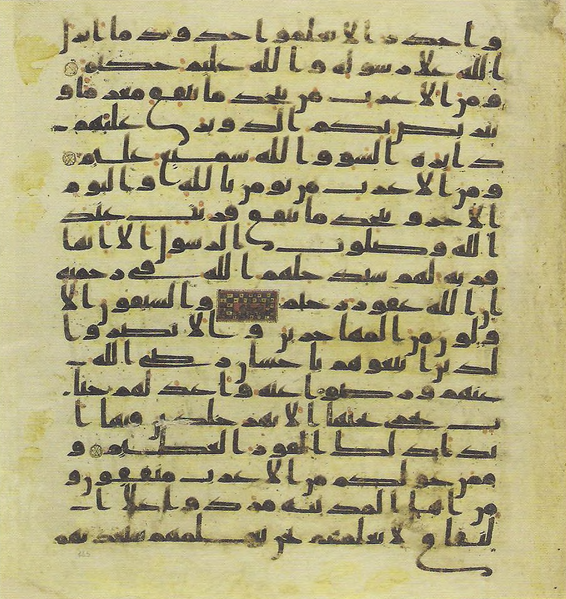 و اجدر الا يعلموا حدود ما انزل
الله علا رسوله والله عليم حكيم
ومن الاعرب من يتخذ ما ينفق مغرما و
يتربص بكم الدوير عليهم
دايرة السو والله سميع عليم
ومن الاعرب من يومن بالله واليوم
الاخر ويتخذ ما ينفق قربت عند
الله وصلوت الرسول الا انها
قربة لهم سيدخلهم الله في رحمته
ان الله غفور رحيم والسبقون الا
ولون من المهاجرين والانصر وا
لذين اتبعوهم باحسان رضي الله
عنهم ورضوا عنه واعد لهم جنا
ت تجري تحتها الانهر خلدين فيها ا
بدا ذلك الفوز العظيم و
ممن حولكم من الاعرب منفقون و
من اهل المدينة مردوا علا ا
لنفاق لا تعلمهم نحن نعلمهم سنعذبهم